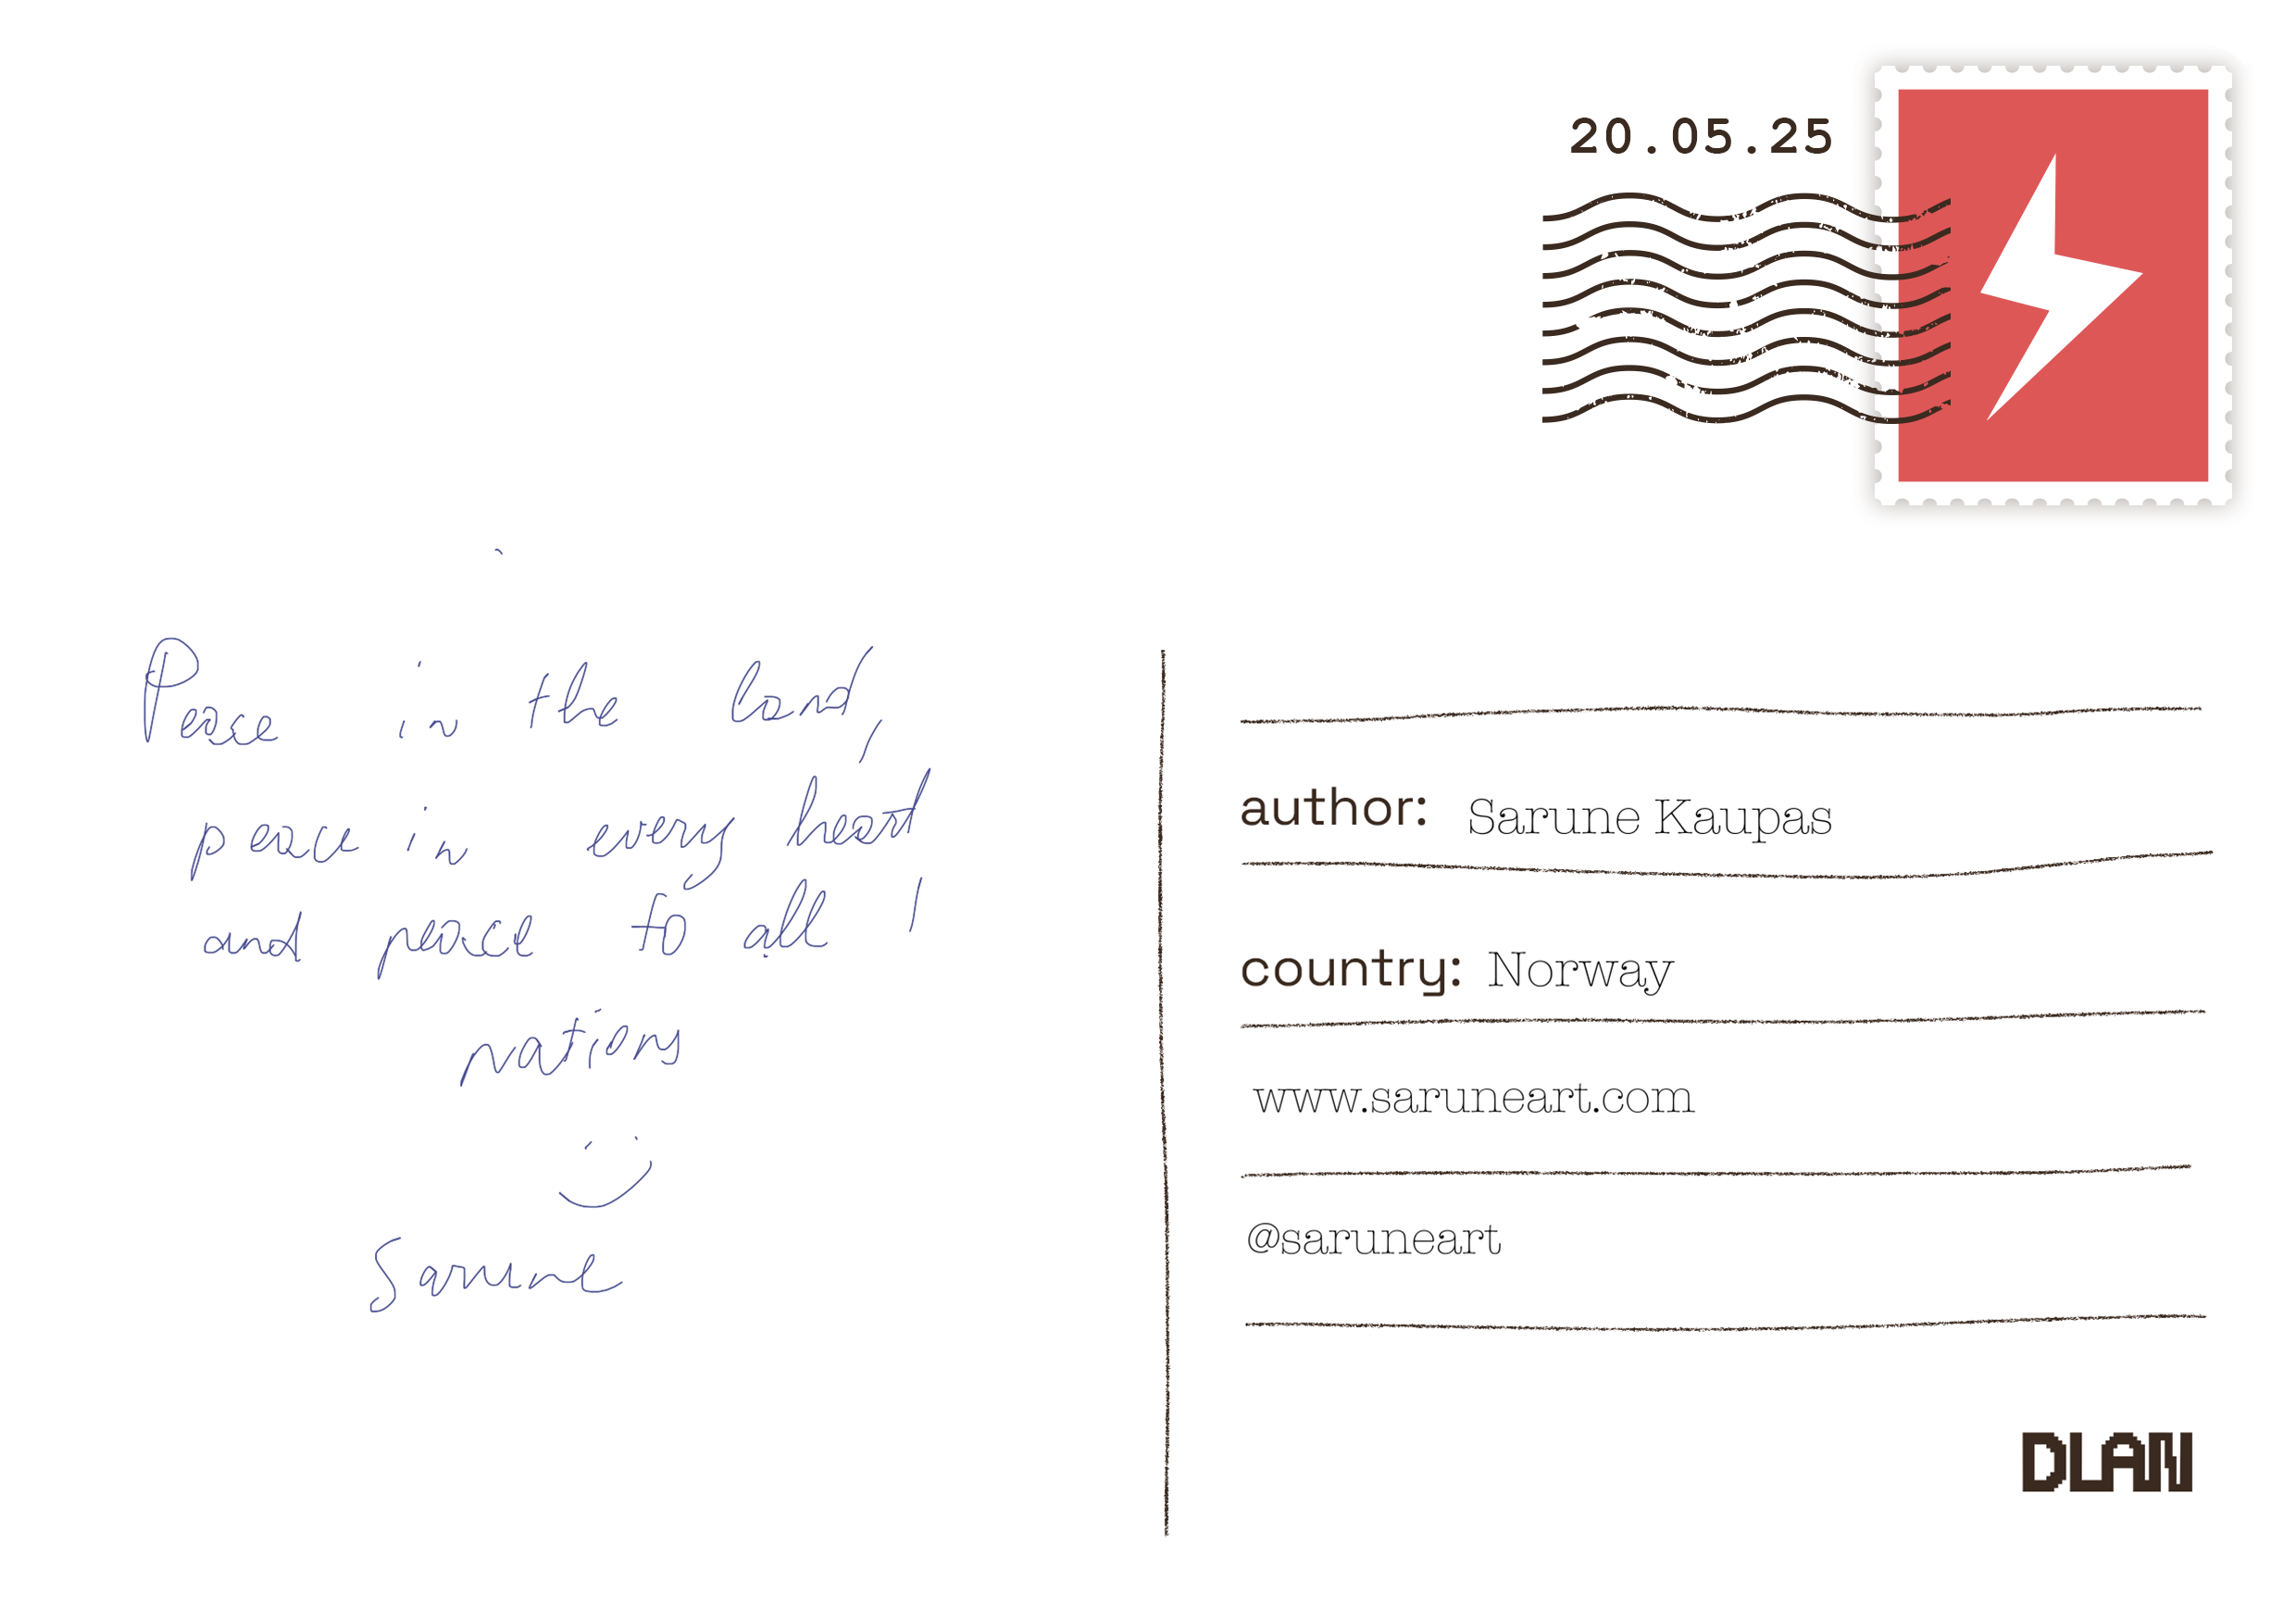 20.05.25
Peace in the land,
peace in every heart
and peace to all !
nations
Sarune
author: Sarune Kaupas
country: Norway
www.saruneart.com
@saruneart
DLAN